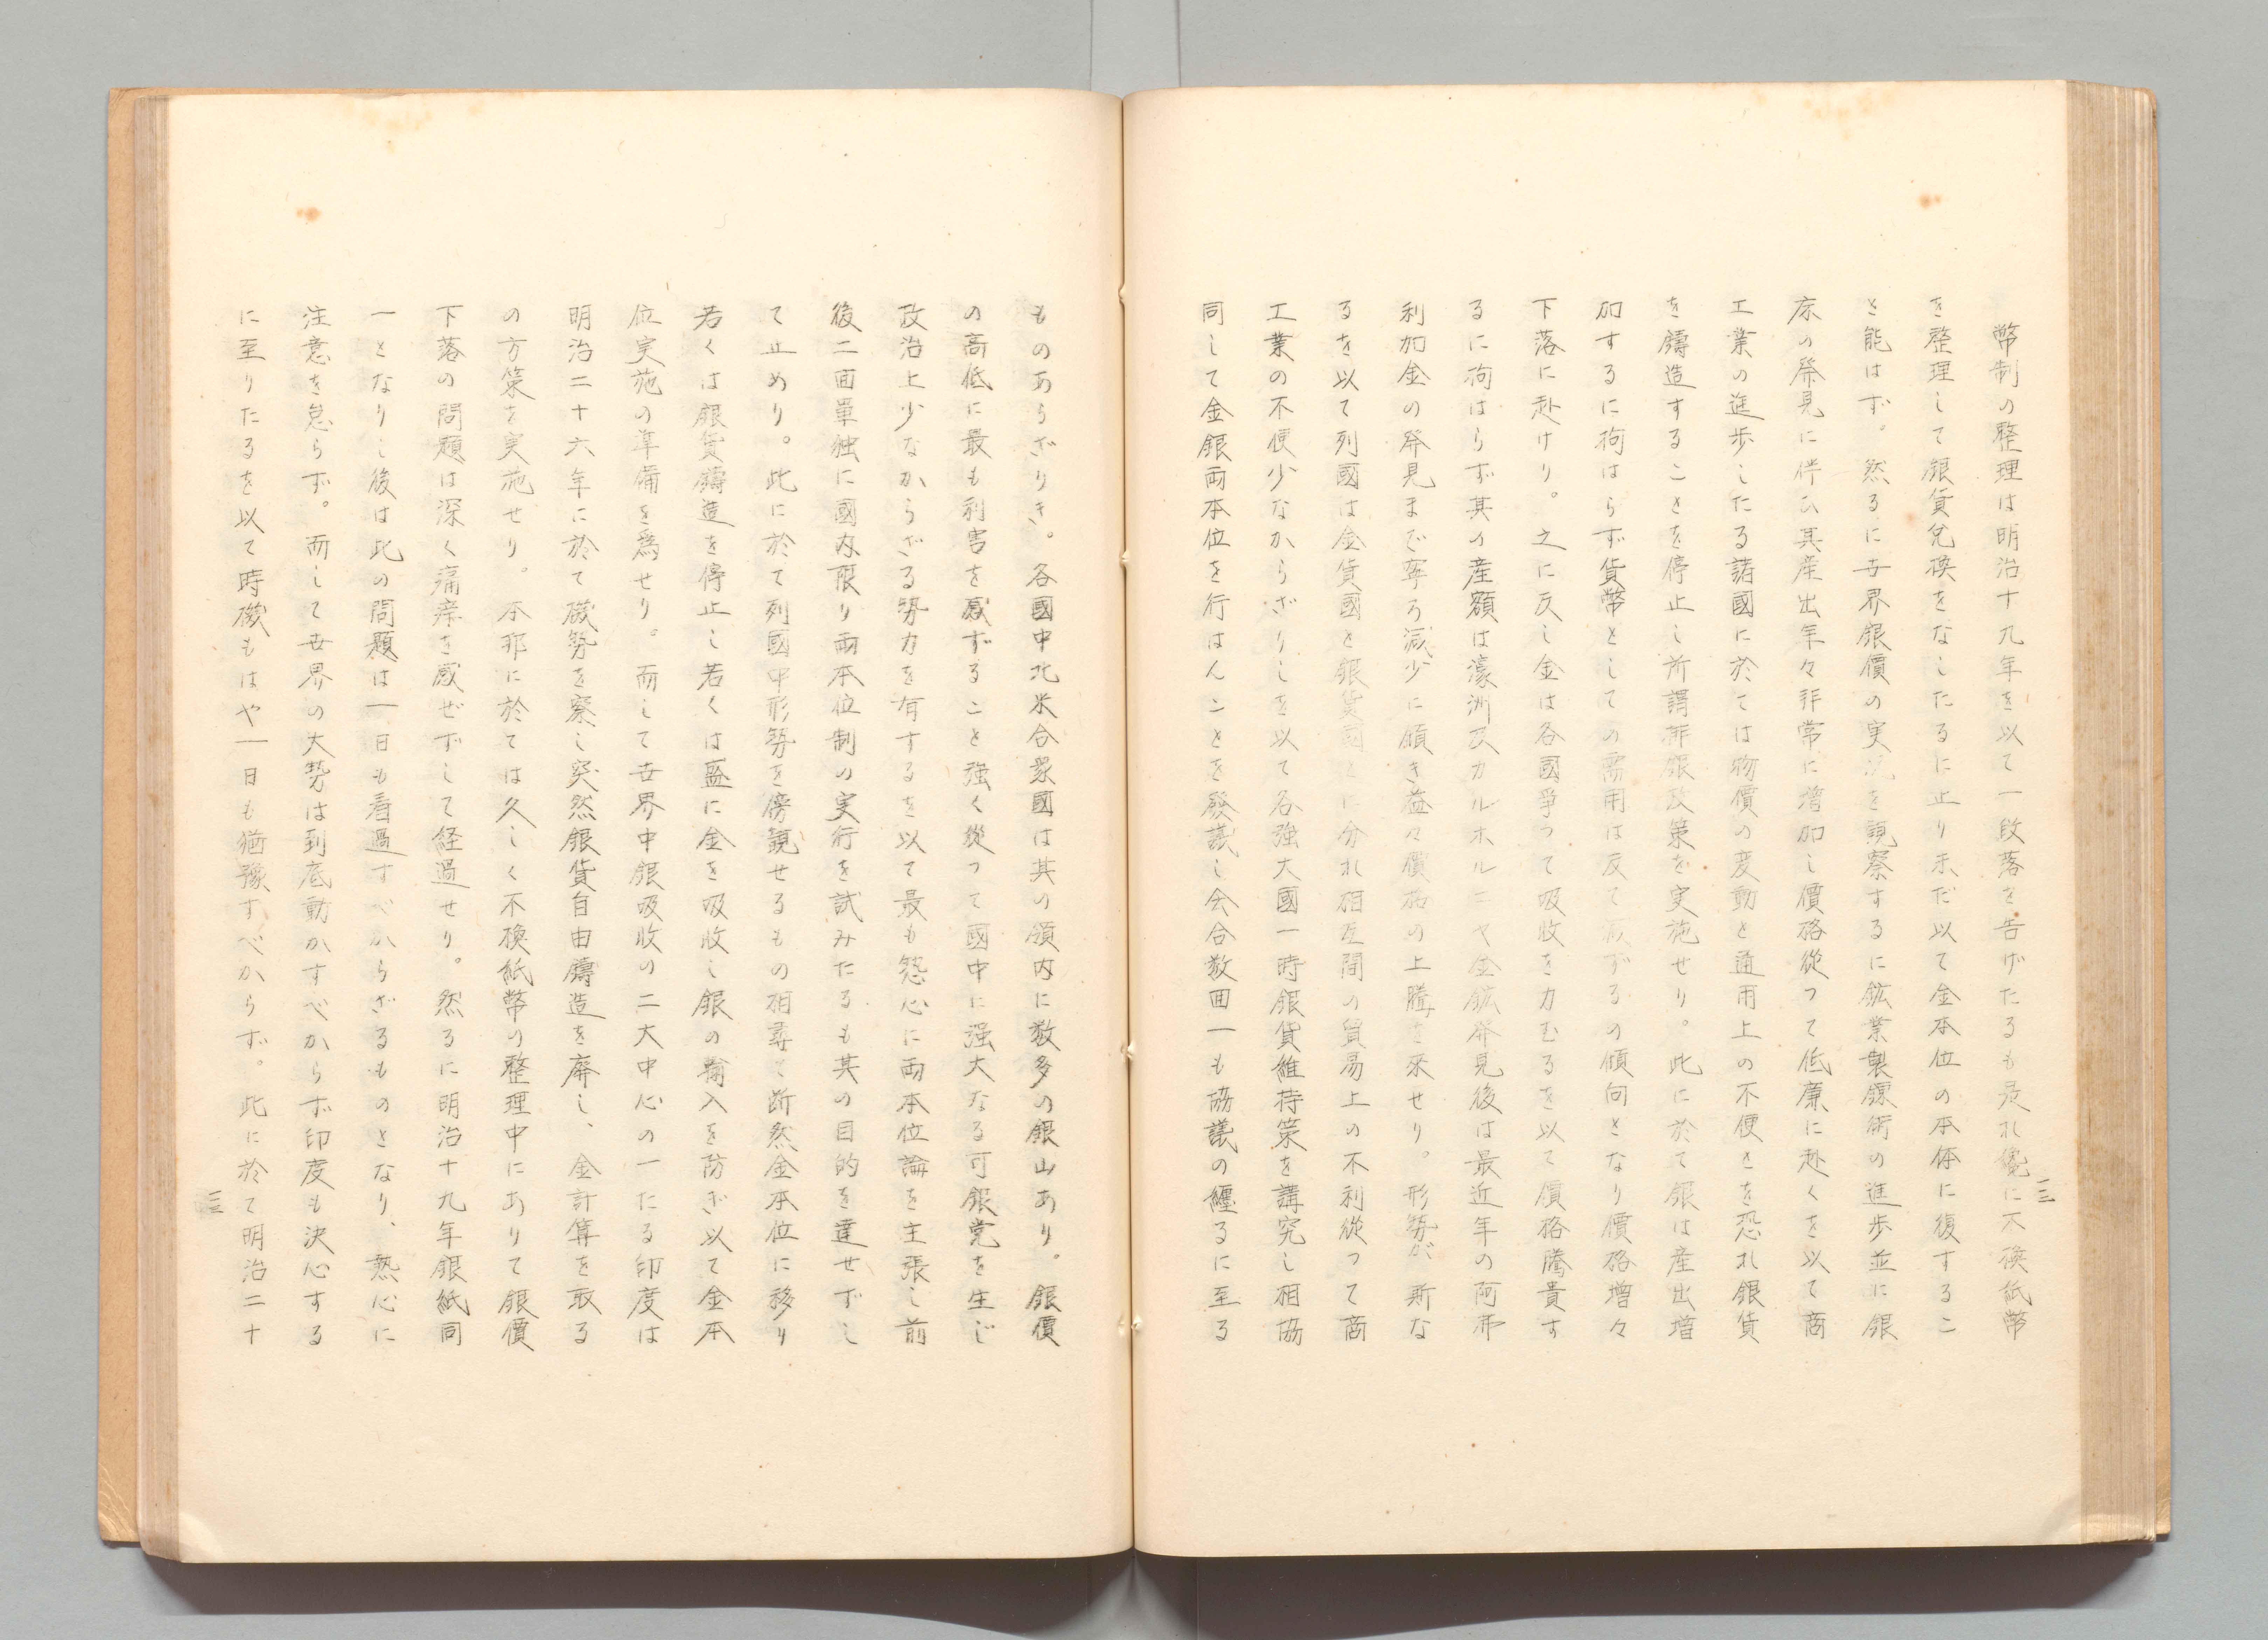 幣制の整理は明治十九年を以て一段落を告げたるも是れ僅に不換紙幣
を整理して銀貨兌換をなしたるに止り未だ以て金本位の本体に復するこ
と能はず。然るに世界銀價の実況を観察するに鉱業製錬術の進歩並に銀
床の発見に伴ひ其産出年々非常に増加し價格從つて低廉に赴くを以て商
工業の進歩したる諸國に於ては物價の変動と通用上の不便とを恐れ銀貨
を鑄造することを停止し所謂排銀政策を実施せり。此に於て銀は産出増
加するに拘はらず貨幣としての需用は反て減ずるの傾向となり價格増々
下落に赴けり。之に反し金は各國爭つて吸收を力むるを以て價格騰貴す
るに拘はらず其の産額は濠洲及カルホルニヤ金鉱発見後は最近年の阿弗
利加金の発見まで寧ろ減少に傾き益々價格の上騰を来せり。形勢が斯な
るを以て列國は金貨國と銀貨國とに分れ相互間の貿易上の不利從つて商
工業の不便少なからざりしを以て各強大國一時銀貨維持策を講究し相協
同して金銀両本位を行はんことを發議し会合数囬一も協議の纏るに至る
三
ものあらざりき。各國中北米合衆國は其の領内に数多の銀山あり。銀價
の高低に最も利害を感ずること強く從つて國中に强大なる可銀党を生じ
政治上少なからざる勢力を有するを以て最も怨心に両本位論を主張し前
後二回單独に國内限り両本位制の実行を試みたるも其の目的を達せずし
て止めり。此に於て列國中形勢を傍観せるもの相尋ぐ断然金本位に移り
若くは銀貨鑄造を停止し若くは盛に金を吸收し銀の輸入を防ぎ以て金本
位実施の準備を爲せり。而して世界中銀吸收の二大中心の一たる印度は
明治二十六年に於て磯勢を察し突然銀貨自由鑄造を廃し、金計算を取る
の方策を実施せり。本邦に於ては久しく不換紙幣の整理中にありて銀價
下落の問題は深く痛痒を感ぜずして経過せり。然るに明治十九年銀紙同
一となりし後は此の問題は一日も看過すべからざるものとなり、熱心に
注意を怠らず。而して世界の大勢は到底動かすべからず印度も決心する
に至りたるを以て時磯もはや一日も猶豫すべからず。此に於て明治二十
三